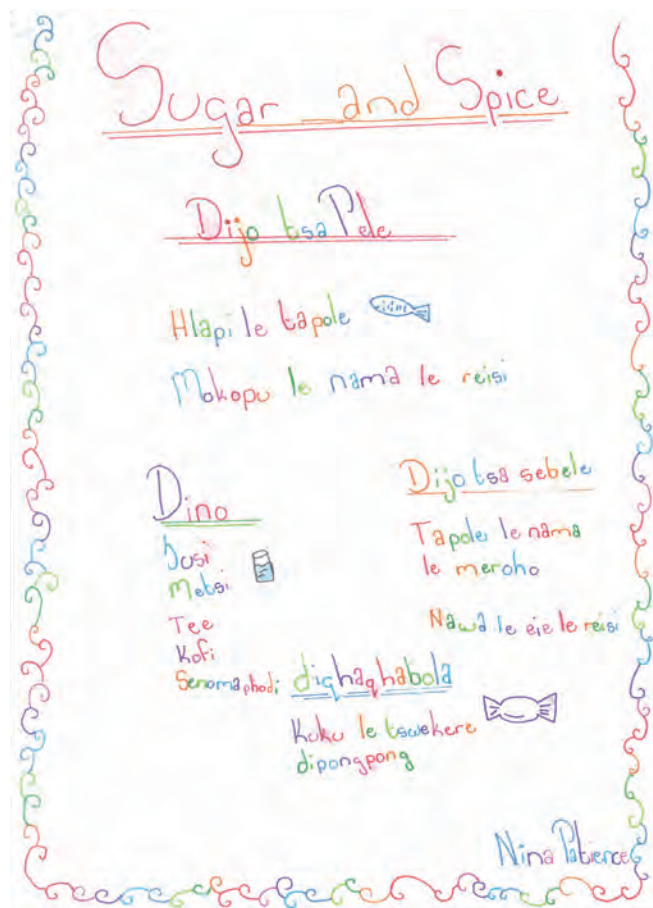 Sugar and Spice
Dijo tsa Pele
Hlapi le tapole
Mokopu le nama le reisi
Dino
Jusi
Metsi
Tee
Kofi
Senomaphodi
Dijo tsa sebele
Tapole le nama
le meroho
Nawa le eie le reisi
diqhaqhabola
Kuku le tswekere
dipongpong
Nina Patience